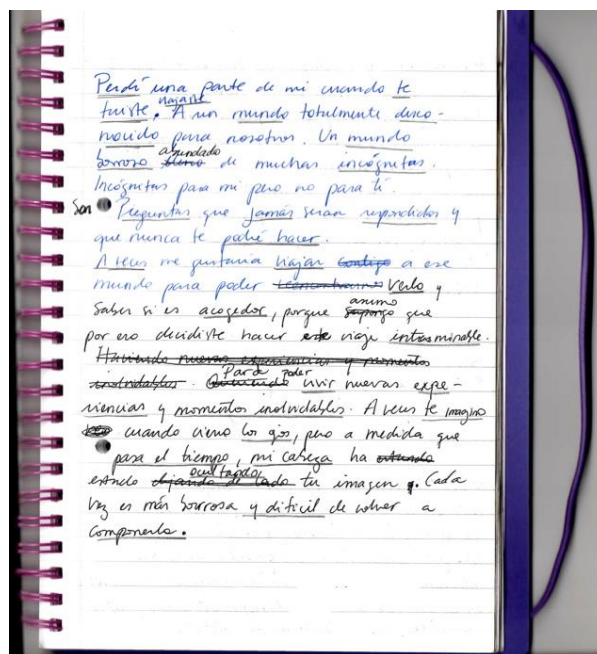 Perdí una parte de mi cuando te
fuiste. Viajaste A un mundo totalmente desco-
nocido para nosotros. Un mundo
borroso abundado de muchas incógnitas.
Incógnitas para mi pero no para ti.
Son Preguntas que jamás seran respondidas y
que nunca te podré hacer.
A veces me gustaria viajar contigo a ese
mundo para poder reencontrarnos verlo y
saber si es acogedor, porque supongo asumo que
por eso decidiste hacer este viaje interminable.
Haciendo nuevas experiencias y momentos
inolvidables. Para poder vivir nuevas expe-
riencias y momentos inolvidables. A veces te imagino
cuando cierro los ojos, pero a medida que
pasa el tiempo, mi cabeza ha estando
estado dejando de lado ocultando tu imagen. Cada
vez es más borrosa y difícil de volver a
componerla.